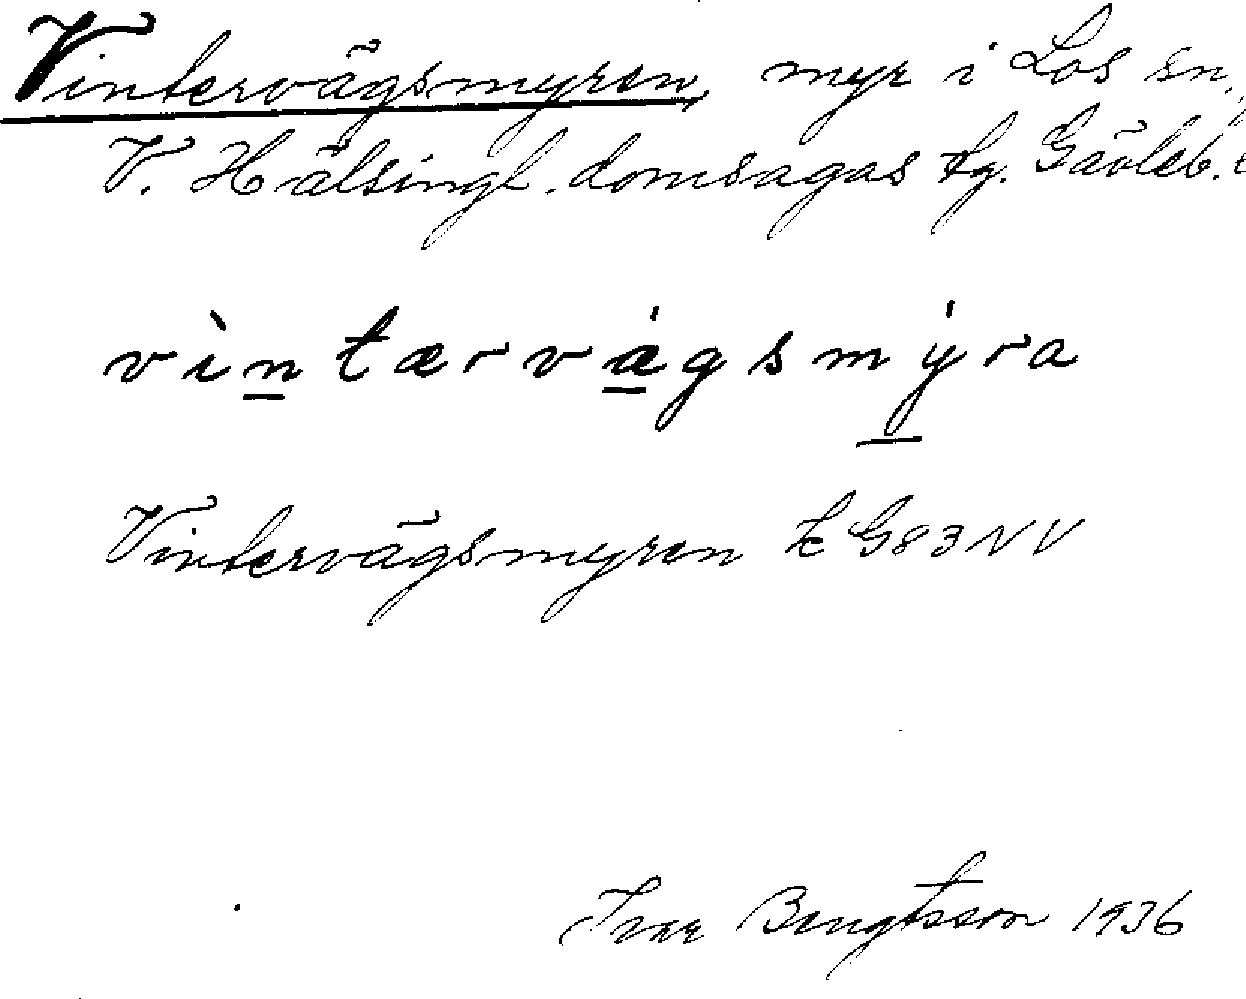 Vintervägsmyren, myr i Los sn,
V. Hälsingl. domsagas tg. Gävleb.
vìntærvǻgsmẏra
Vintervägsmyren K G83NV
Ivar Bengtsson 1936